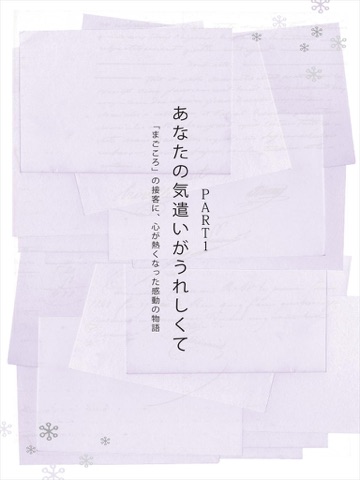 PART1
あなたの気遣いがうれしくて
「まごころ」の接客に、心が熱くなった感動の物語